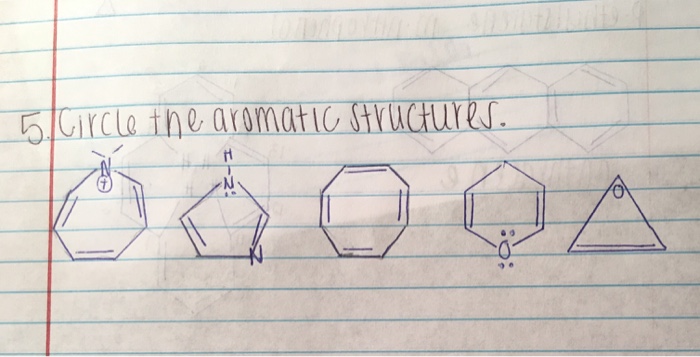 5. Circle the aromatic structures.
H
N N O
+ N O